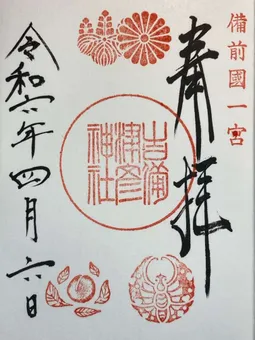 備前國一宮
奉拝
吉備
津彦
神社
令和六年四月六日